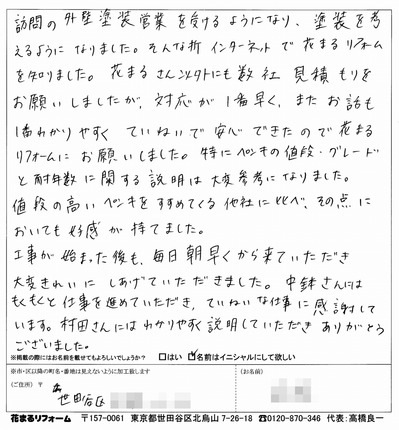 訪問の外壁塗装営業を受けるようになり、塗装を考
えるようになりました。そんな折インターネットで花まるリフォーム
を知りました。花まるさん以外にも数社見積もりを
お願いしましたが、対応が1番早く、またお話も
1番わかりやすくていねいで安心できたので花まる
リフォームにお願いしました。特にペンキの値段・グレード
と耐年数に関する説明は大変参考になりました。
値段の高いペンキをすすめてくる他社に比べ、その点に
おいても好感が持てました。
工事が始まった後も、毎日朝早くから来ていただき
大変きれいにしあげていただきました。中鉢さんには
もくもくと仕事を進めていただき、ていねいな仕事に感謝して
います。村田さんにはわかりやすく説明していただきありがとう
ございました。
※掲載の際にはお名前を載せてもよろしいでしょうか? □はい ☑名前はイニシャルにして欲しい
※市・区以降の町名・番地は見えないように加工致します
(ご住所) 〒
(お名前)
世田谷区
花まるリフォーム 〒157-0061 東京都世田谷区北烏山7-26-18 ☎0120-870-346 代表:高橋良一